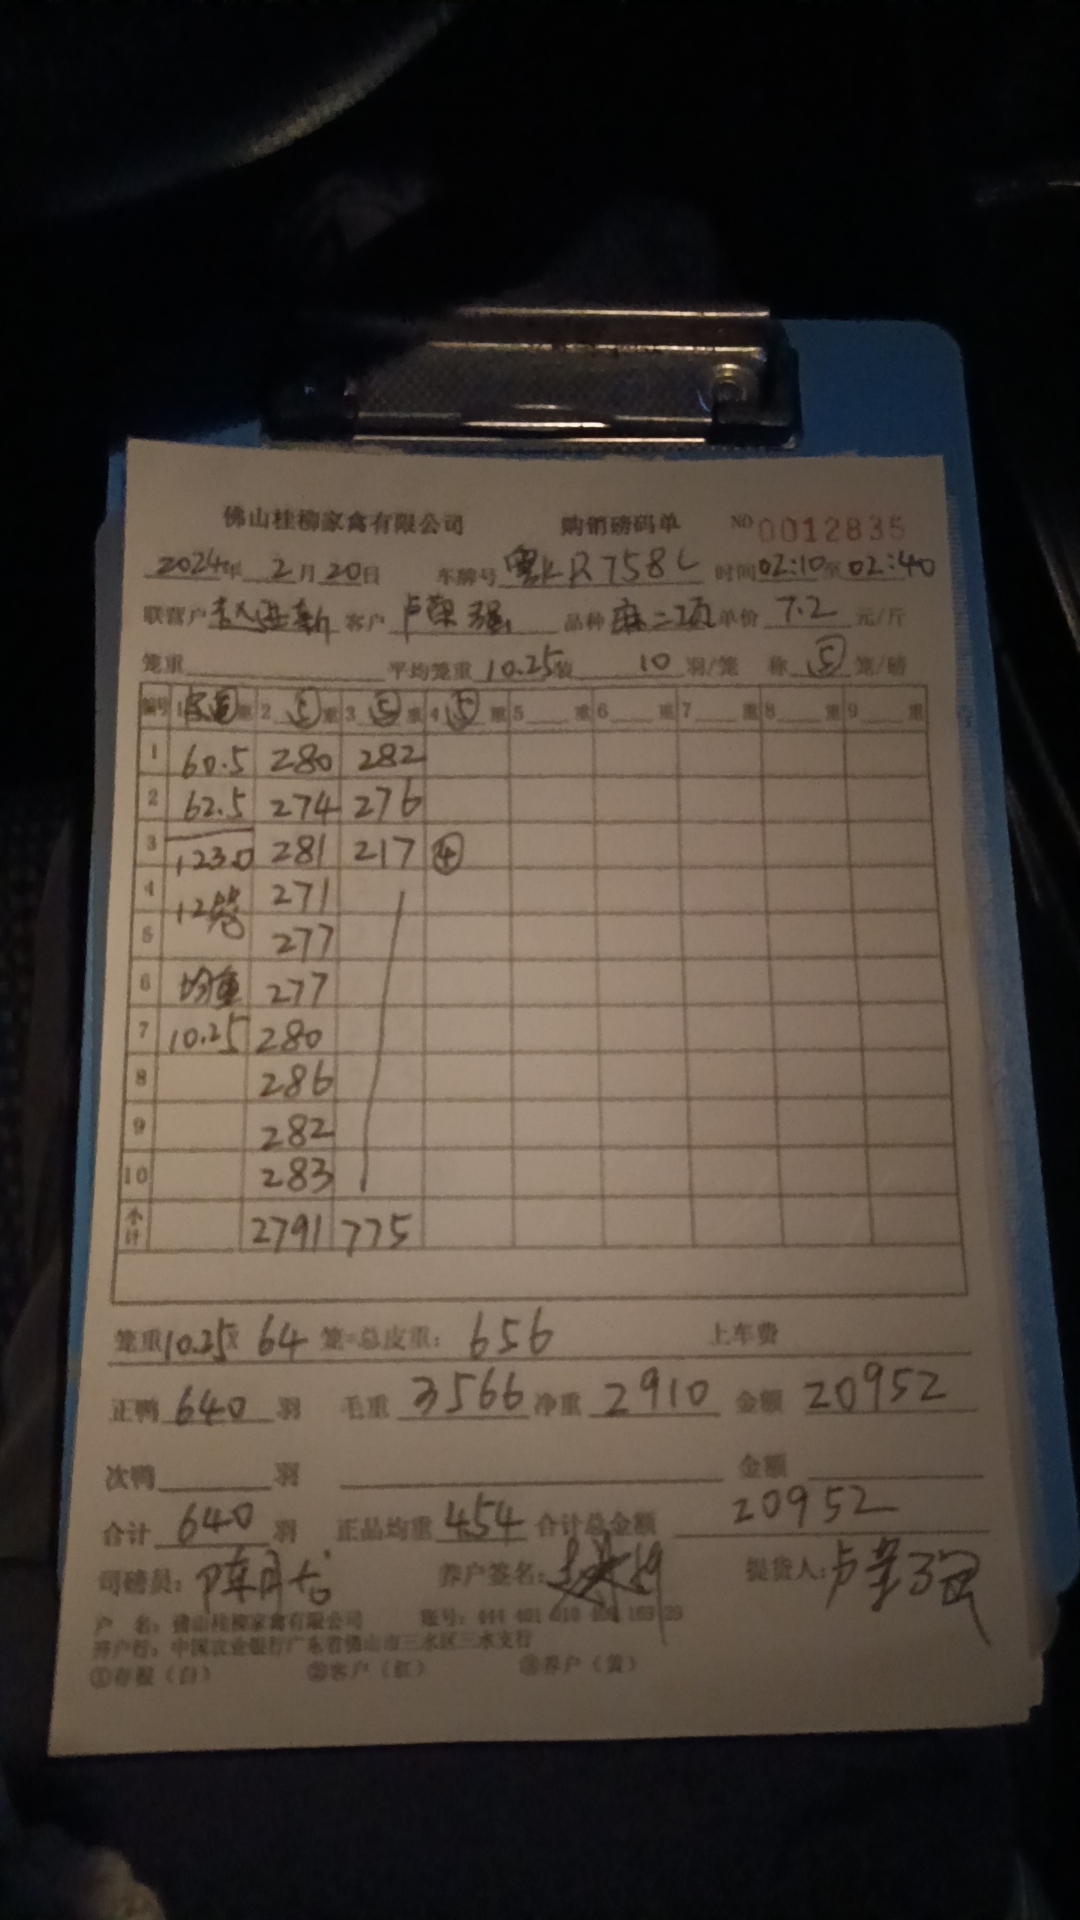 佛山桂柳家禽有限公司 购销磅码单 NO 0012835
2024年 2月 20日 车牌号 粤KR758L 时间 02:10至02:40
联营户 客户 卢荣强 品种 麻二项 单价 7.2 元/斤
笼重 平均笼重 10.25 装 10 羽/笼 称 ⑤ 笼/磅
编号 1 重 2 ⑤ 重 3 ⑤ 重 4 ⑤ 重 5 重 6 重 7 重 8 重 9 重
1 60.5 280 282
2 62.5 274 276
3 123.0 281 217 ④
4 12笼 271
5 277
6 均重 277
7 10.25 280
8 286
9 282
10 283
小计 2791 775
笼重10.25X 64 笼=总皮重: 656 上车费
正鸭 640 羽 毛重 3566 净重 2910 金额 20952
次鸭 羽 金额
合计 640 羽 正品均重 4.54 合计总金额 20952
司磅员: 养户签名: 提货人: 卢荣强
户 名: 佛山桂柳家禽有限公司 账号:
开户行: 中国农业银行广东省佛山市三水区三水支行
①存根(白) ②客户(红) ③养户(黄)